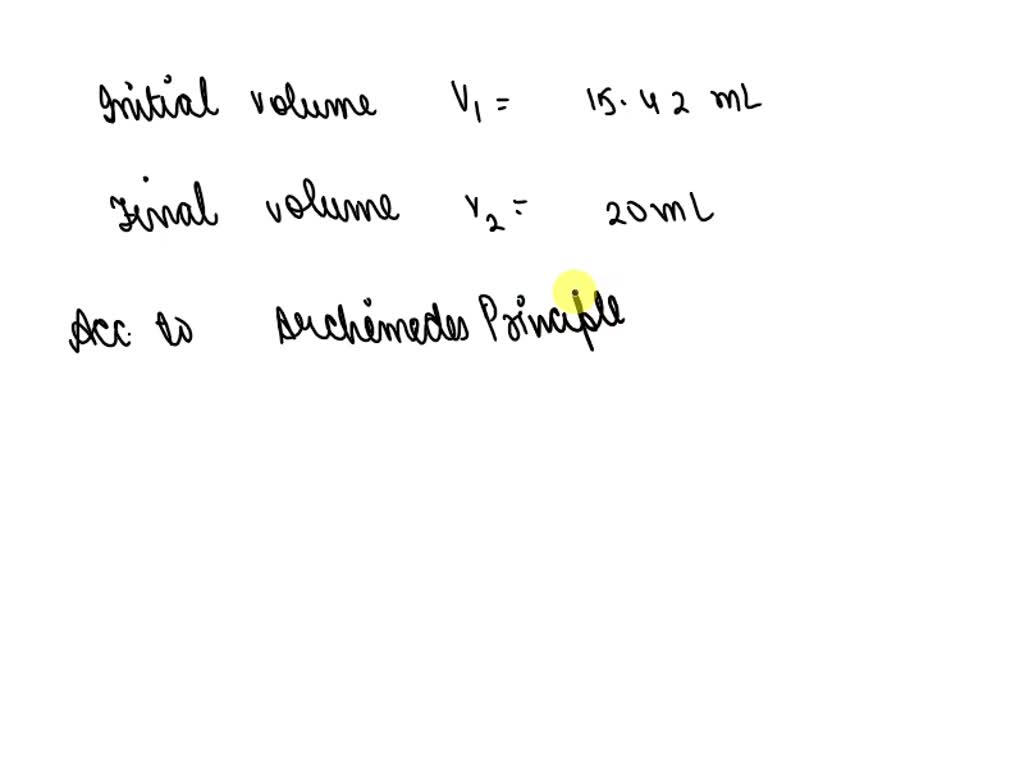 Initial volume V1 = 15.42 mL
Final volume V2 = 20mL
Acc. to Archemedes Principle